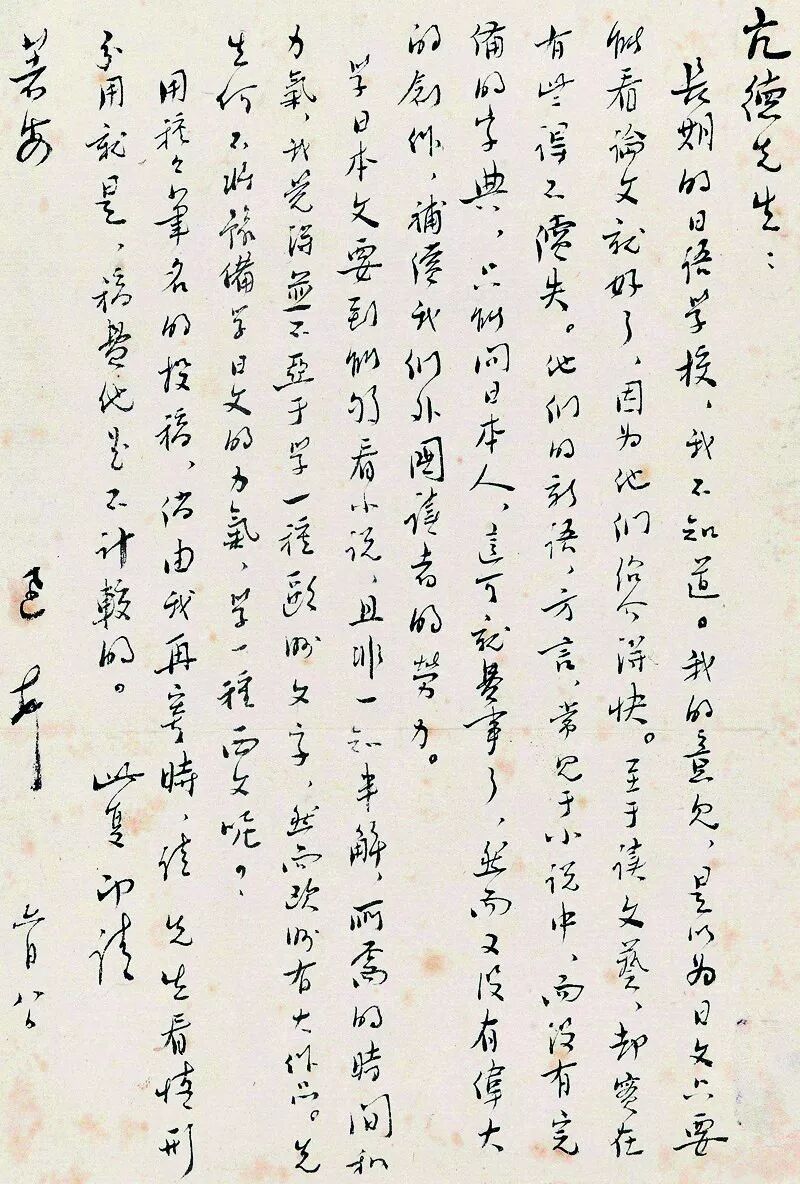 亢德先生：
長期的日语学校，我不知道。我的意見，是以为日文只要
能看論文就好了，因为他们绍介得快。至于读文藝，却實在
有些得不償失。他们的新语，方言，常见于小说中，而没有完
備的字典，只能问日本人，這可就費事了，然而又没有偉大
的創作，補償我们外國读者的劳力。
学日本文要到能够看小说，且非一知半解，所需的時间和
力氣，我觉得並不亞于学一種歐洲文字，然而欧洲有大作品。先
生何不将豫備学日文的力氣，学一種西文呢？
用種々筆名的投稿，倘由我再寄時，请先生看情形
分用就是，稿費他是不计較的。 此复即请
著安
迅 上 六月八日